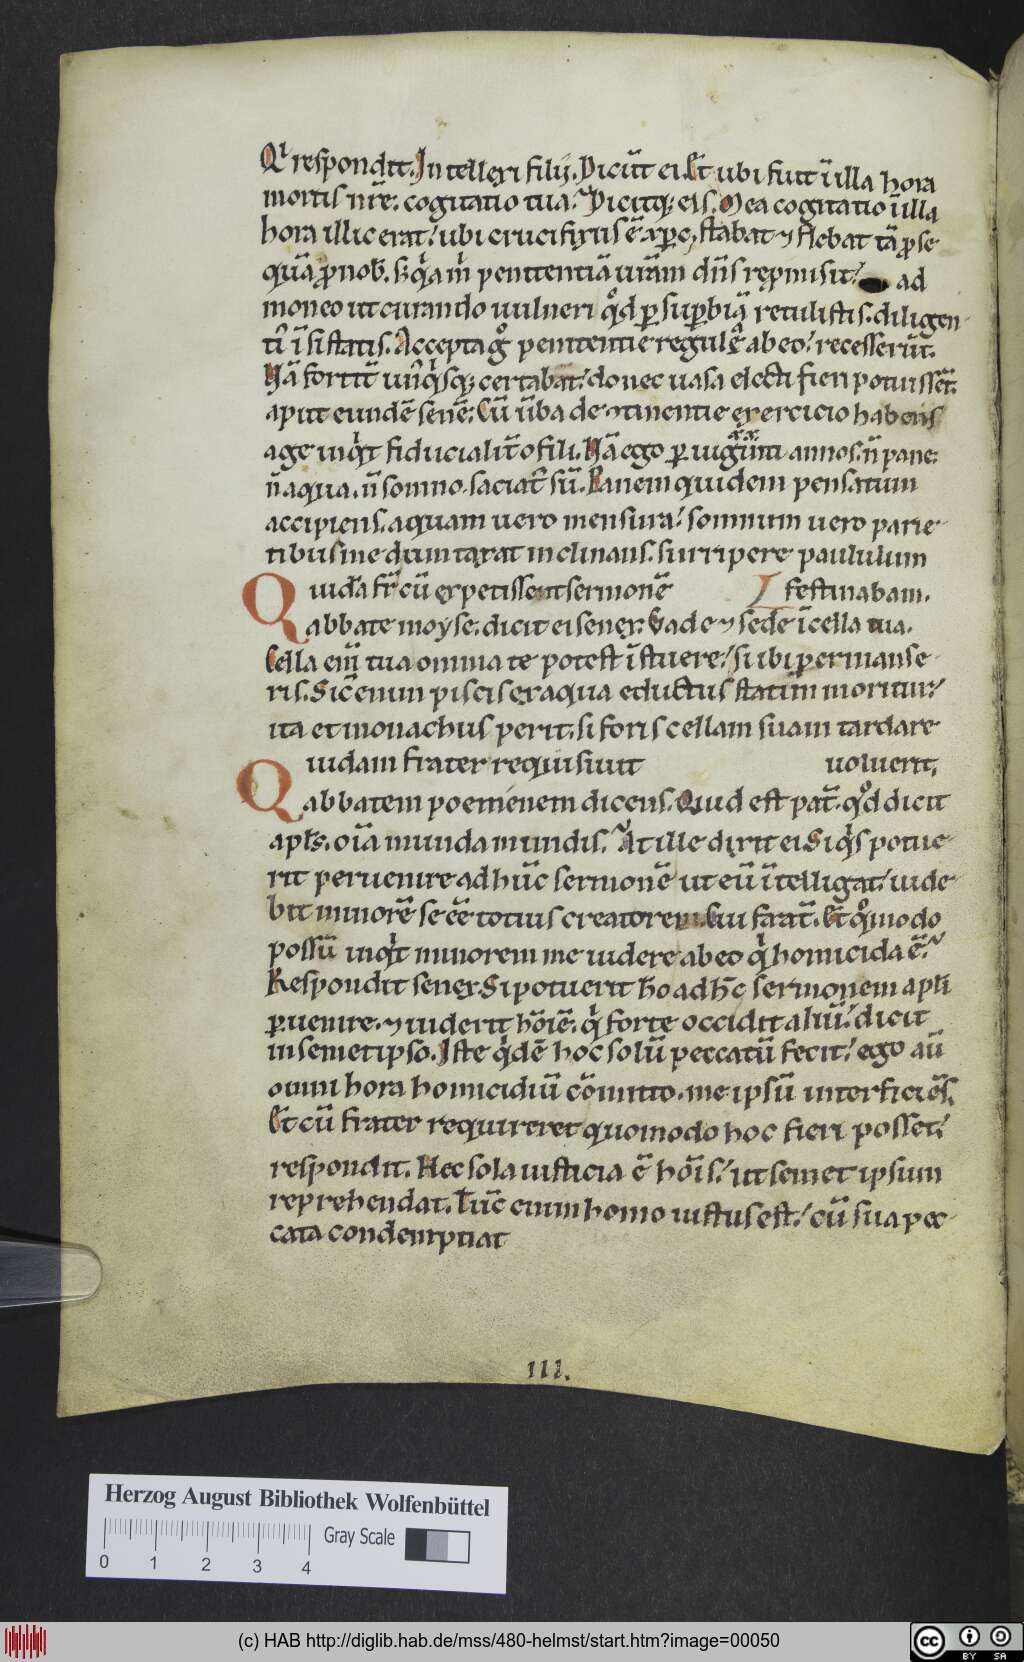 Qͥ respondit. Intellexi filij. Dicūt ei. Et ubi fuit ī illa hora
mortis nr̄e. cogitatio tua? Dicitq; eis. Mea cogitatio ī illa
hora illic erat. ubi crucifixus ē xp̄c, stabat ⁊ flebat tā ꝓ se
quā ꝓ nob̄. penitentiā ur̄am dn̄s repmisit. ad
moneo ut curando uulneri qͦd ꝑ suꝑbiā retulistis. diligen
tͥ īsistatis. Accepta gͦ penitentie regula ab eo. recesserūt.
Nā fortit̄ un̄qͥsq; certabat. donec uasa electi fieri potuissēt.
aput eundē senē. Cū ūba de ⁊tinentie exercicio habens
age inqͥt fiducialit̄ o fili. Nā ego ꝑ uiginti annos. n̄ pane.
xx
n̄ aqua. n̄ somno. saciatͥ sū. Panem quidem pensatum
accipiens. aquam uero mensura. somnum uero parie
tibus me dumtaxat inclinans. surripere paululum
Quidā fr̄ cū expetissent sermonē festinabam.
abbate moyse. dicit ei senex. Vade ⁊ sede ī cella tua.
Cella eni tua omnia te potest īstuere. si ibi permanse
ris. Sic̄ enim piscis ex aqua eductus statim moritur.
ita et monachus perit. si foris cellam suam tardare
Quidam frater requisiuit uoluerit.
abbatem poemenem dicens. Quid est pat̄. qͦd dicit
apl̄s. oīa munda mundis. At ille dixit ei Siqͥs potue
rit peruenire ad hūc sermonē ut eū ītelligat. uide
bit minorē se ēe totius creatorem. Cui frat̄. Et qͦmodo
possū inqͥt minorem me uidere ab eo qͥ homicida ē?
Respondit senex. Si potuerit hō ad hc̄ sermonem apl̄i
ꝑuenire. ⁊ uiderit hōīē. qͥ forte occidit aliū. dicit
in semetipso. Iste qͥdē hoc solū peccatū fecit. ego aū
omni hora homicidiū cōmitto. me ipsū interficiēs.
Et cū frater requireret quomodo hoc fieri posset.
respondit. Hec sola iusticia ē hōīs. ut semet ipsum
reprehendat. Tūc enim homo iustus est. cū sua pec
cata condempnat
III.
Herzog August Bibliothek Wolfenbüttel
Gray Scale
0 1 2 3 4
(c) HAB http://diglib.hab.de/mss/480-helmst/start.htm?image=00050
cc BY SA